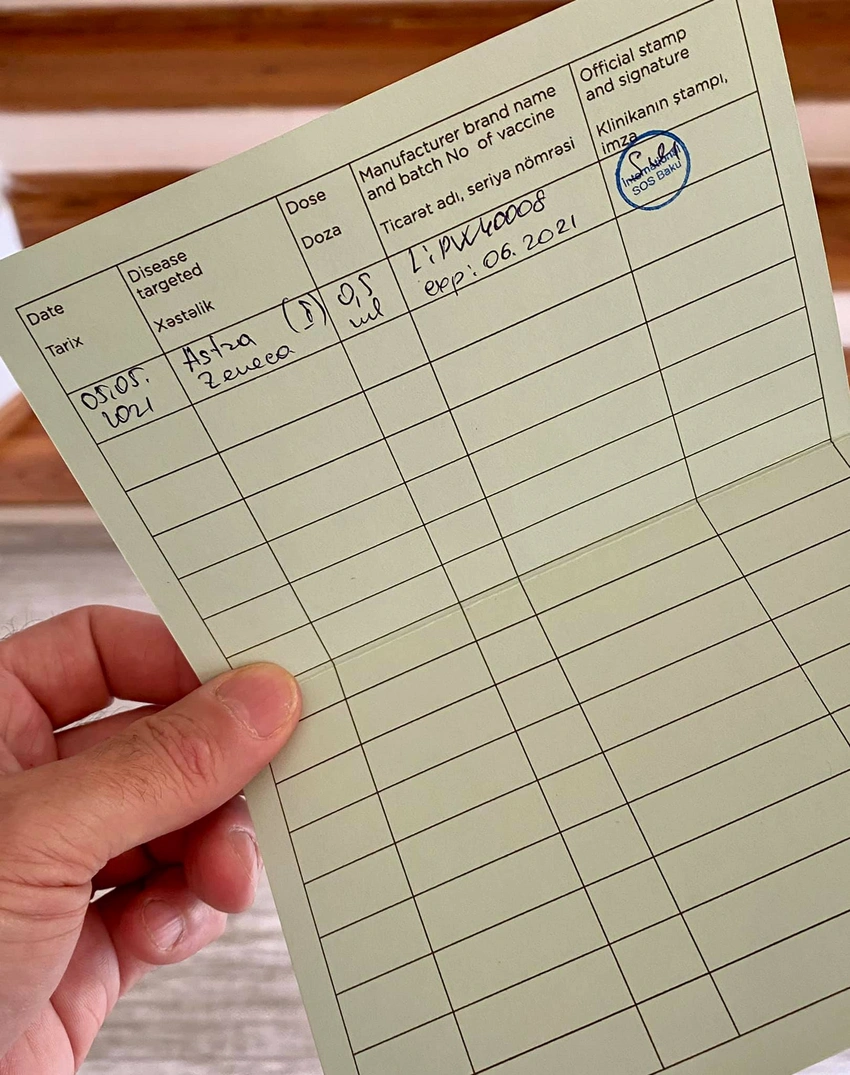 Date
Tarix
Disease
targeted
Xəstəlik
Dose
Doza
Manufacturer brand name
and batch No of vaccine
Ticarət adı, seriya nömrəsi
Official stamp
and signature
Klinikanın ştampı,
imza
05.05.
2021
Astra (I)
Zeneca
0,5
ml
exp: 06.2021
International
SOS Baku